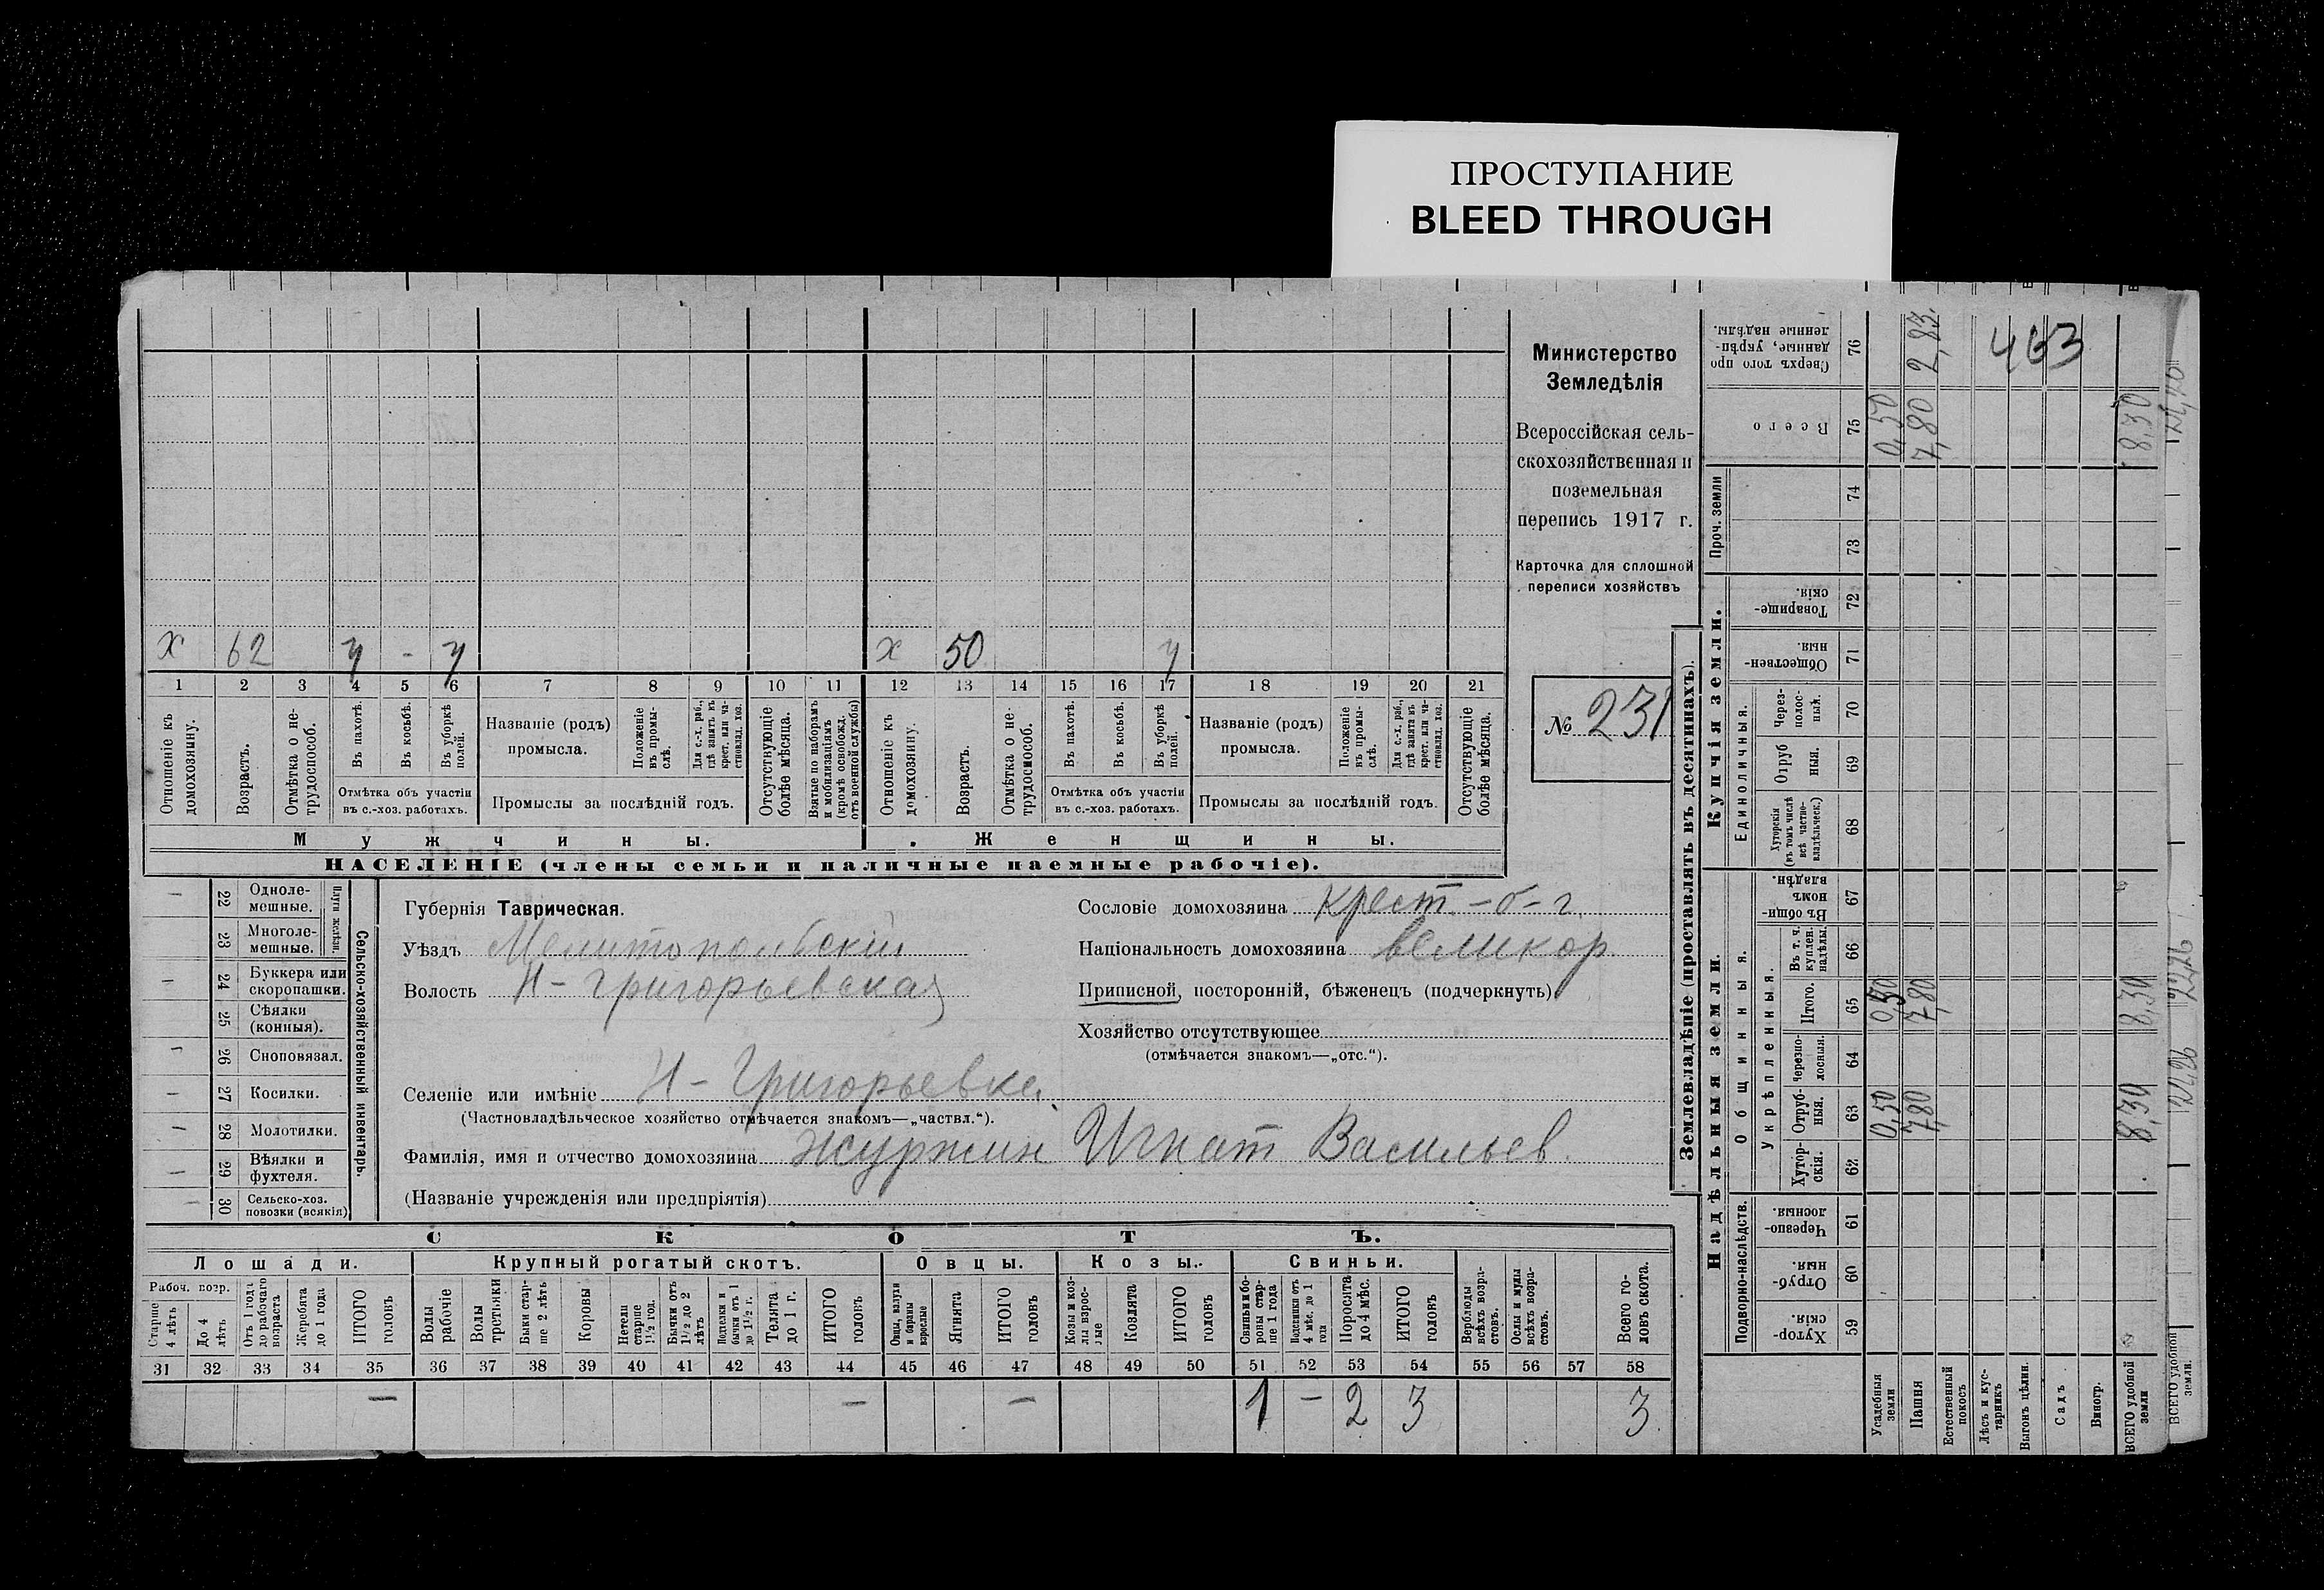 ПРОСТУПАНИЕ
BLEED THROUGH
Министерство
Земледѣлія
Всероссійская сель-
скохозяйственная и
поземельная
перепись 1917 г.
Карточка для сплошной
переписи хозяйствъ
№ 231
х 62 у - у х 50 у
1 2 3 4 5 6 7 8 9 10 11 12 13 14 15 16 17 18 19 20 21
Отношеніе къ домохозяину.
Возрастъ.
Отмѣтка о не-трудоспособ.
Въ пахотѣ.
Въ косьбѣ.
Въ уборкѣ полей.
Отмѣтка объ участіи
въ с.-хоз. работахъ.
Названіе (родъ)
промысла.
Положеніе въ промы-слѣ.
Для с.-х. раб., гдѣ занятъ въ крест. или ча-стновлад. хоз.
Промыслы за послѣдній годъ.
Отсутствующіе болѣе мѣсяца.
Взятые по наборамъ и мобилизаціямъ (кромѣ освобожд. отъ военной службы)
Отношеніе къ домохозяину.
Возрастъ.
Отмѣтка о не-трудоспособ.
Въ пахотѣ.
Въ косьбѣ.
Въ уборкѣ полей.
Отмѣтка объ участіи
въ с.-хоз. работахъ.
Названіе (родъ)
промысла.
Положеніе въ промы-слѣ.
Для с.-х. раб., гдѣ занята въ крест. или ча-стновлад. хоз.
Промыслы за послѣдній годъ.
Отсутствующіе болѣе мѣсяца.
Мужчины. Женщины.
НАСЕЛЕНІЕ (члены семьи и наличные наемные рабочіе).
Сельско-хозяйственный инвентарь.
Плуги желѣзн.
22 Одноле-мешные. —
23 Многоле-мешные. —
24 Буккера или скоропашки. —
25 Сѣялки (конныя).
26 Сноповязал. —
27 Косилки. —
28 Молотилки. —
29 Вѣялки и фухтеля. —
30 Сельско-хоз. повозки (всякія) —
Губернія Таврическая.
Уѣздъ Мелитопольскій
Волость Н-Григорьевская
Селеніе или имѣніе Н-Григорьевка
(Частновладѣльческое хозяйство отмѣчается знакомъ—„частвл.“).
Фамилія, имя и отчество домохозяина Журжин Игнат Васильев
(Названіе учрежденія или предпріятія)
Сословіе домохозяина крест.-б-г.
Національность домохозяина великор.
Приписной, посторонній, бѣженецъ (подчеркнуть)
Хозяйство отсутствующее
(отмѣчается знакомъ—„отс.“).
СКОТЪ.
Лошади. Крупный рогатый скотъ. Овцы. Козы. Свиньи.
Рабоч. возр.
Старше 4 лѣтъ
До 4 лѣтъ
Отъ 1 года до рабочаго возраста
Жеребята до 1 года
ИТОГО головъ
Волы рабочіе
Волы третьяки
Быки стар-ше 2 лѣтъ
Коровы
Нетели старше 1½ год.
Бычки отъ 1½ до 2 лѣтъ
Подтелки и бычки отъ 1 до 1½ г.
Телята до 1 г.
ИТОГО головъ
Овцы, валухи и бараны взрослые
Ягнята
ИТОГО головъ
Козы и коз-лы взрос-лые
Козлята
ИТОГО головъ
Свиньи и бо-ровы стар-ше 1 года
Подсвинки отъ 4 мѣс. до 1 года
Поросята до 4 мѣс.
ИТОГО головъ
Верблюды всѣхъ возра-стовъ.
Ослы и мулы всѣхъ возра-стовъ.
Всего го-ловъ скота.
31 32 33 34 35 36 37 38 39 40 41 42 43 44 45 46 47 48 49 50 51 52 53 54 55 56 57 58
— — — 1 — 2 3 3
Землевладѣніе (проставлять въ десятинахъ).
Надѣльныя земли. Купчія земли.
Проч. земли
Подворно-наслѣдств.
Общинныя.
Укрѣпленныя.
Единоличныя.
76 Сверхъ того про данные, укрѣп-ленные надѣлы.
75 Всего
74
73
72 Товарище-скія.
71 Обществен-ныя.
70 Через-полос-ныя.
69 Отруб ныя.
68 Хуторскія (въ томъ числѣ всѣ частно-владѣльческ.)
67 Въ общи-номъ владѣн.
66 Въ т. ч. куплен. надѣлы.
65 Итого.
64 Черезпо-лосныя.
63 Отруб-ныя.
62 Хутор-скія.
61 Черезпо-лосныя.
60 Отруб-ныя.
59 Хутор-скія.
Усадебныя земли 0,50 0,50 0,50
Пашня 7,80 7,80 7,80 2,83
Естественный покосъ
Лѣсъ и кус-тарникъ
Выгонъ цѣлин.
Садъ
Виногр.
ВСЕГО удобной земли 8,30 8,30 8,30
463
ВСЕГО удобной земли.